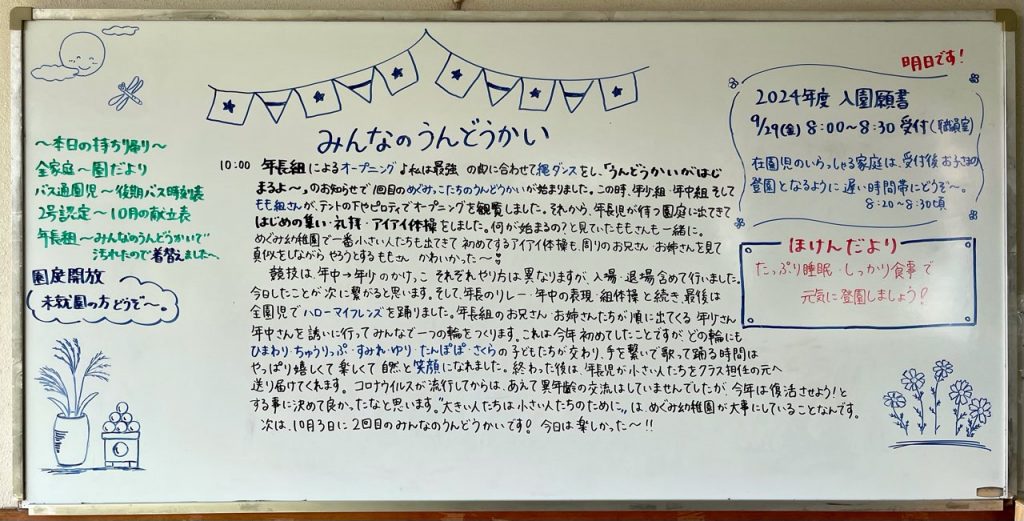 ～本日の持ち帰り～
全家庭～園だより
バス通園児～後期バス時刻表
2号認定～10月の献立表
年長組～みんなのうんどうかいで
汚れたので着替えました。
園庭開放
未就園の方どうぞ～。
みんなのうんどうかい
10:00 年長組によるオープニング♪私は最強 の曲に合わせて縄ダンスをし、「うんどうかいがはじ
まるよ～」のお知らせで1回目のめぐみっこたちのうんどうかいが始まりました。この時、年少組・年中組 そして
もも組さんが、テントの下やピロティでオープニングを観覧しました。それから、年長児が待つ園庭に出てきて
はじめの集い・礼拝・アイアイ体操をしました。何が始まるの?と見ていたももさんも一緒に。
めぐみ幼稚園で一番小さい人たちも出てきて 初めてするアイアイ体操も、周りのお兄さん・お姉さんを見て
真似をしながら やろうとするももさん かわいかった～♥
競技は、年中→年少のかけっこ それぞれやり方は異なりますが、入場・退場含めて行いました。
今日したことが次に繋がると思います。そして、年長のリレー・年中の表現・組体操と続き、最後は
全園児でハローマイフレンズを踊りました。年長組のお兄さん・お姉さんたちが順に出てくる 年少さん
年中さんを誘いに行ってみんなで一つの輪をつくります。これは今年初めてしたことですが、どの輪にも
ひまわり・ちゅうりっぷ・すみれ・ゆり・たんぽぽ・さくらの子どもたちが交わり、手を繋いで歌って踊る時間は
やっぱり嬉しくて楽しくて自然と笑顔になれました。終わった後は、年長児が小さい人たちをクラス担任の元へ
送り届けてくれます。コロナウイルスが流行してからは、あえて異年齢の交流はしていませんでしたが、今年は復活させよう!と
する事に決めて良かったなと思います。"大きい人たちは小さい人たちのために"は、めぐみ幼稚園が大事にしていることなんです。
次は、10月3日に2回目のみんなのうんどうかいです! 今日は楽しかった～!!
明日です!
2024年度 入園願書
9/29(金) 8:00～8:30 受付(職員室)
在園児のいらっしゃる家庭は、受付後お子さまの
登園となるように遅い時間帯にどうぞ～。
8:20～8:30頃
ほけんだより
たっぷり睡眠・しっかり食事で
元気に登園しましょう!